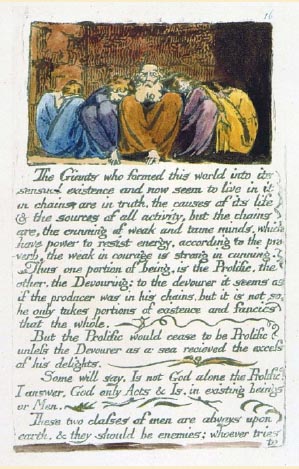 16
The Giants who formed this world into its
sensual existence and now seem to live in it
in chains, are in truth, the causes of its life
& the sources of all activity, but the chains
are, the cunning of weak and tame minds, which
have power to resist energy, according to the pro-
verb, the weak in courage is strong in cunning.
Thus one portion of being, is the Prolific, the
other, the Devouring: to the devourer it seems as
if the producer was in his chains, but it is not so,
he only takes portions of existence and fancies
that the whole.
But the Prolific would cease to be Prolific
unless the Devourer as a sea recieved the excess
of his delights.
Some will say, Is not God alone the Prolific?
I answer, God only Acts & Is, in existing beings
or Men.
These two classes of men are always upon
earth, & they should be enemies; whoever tries
to